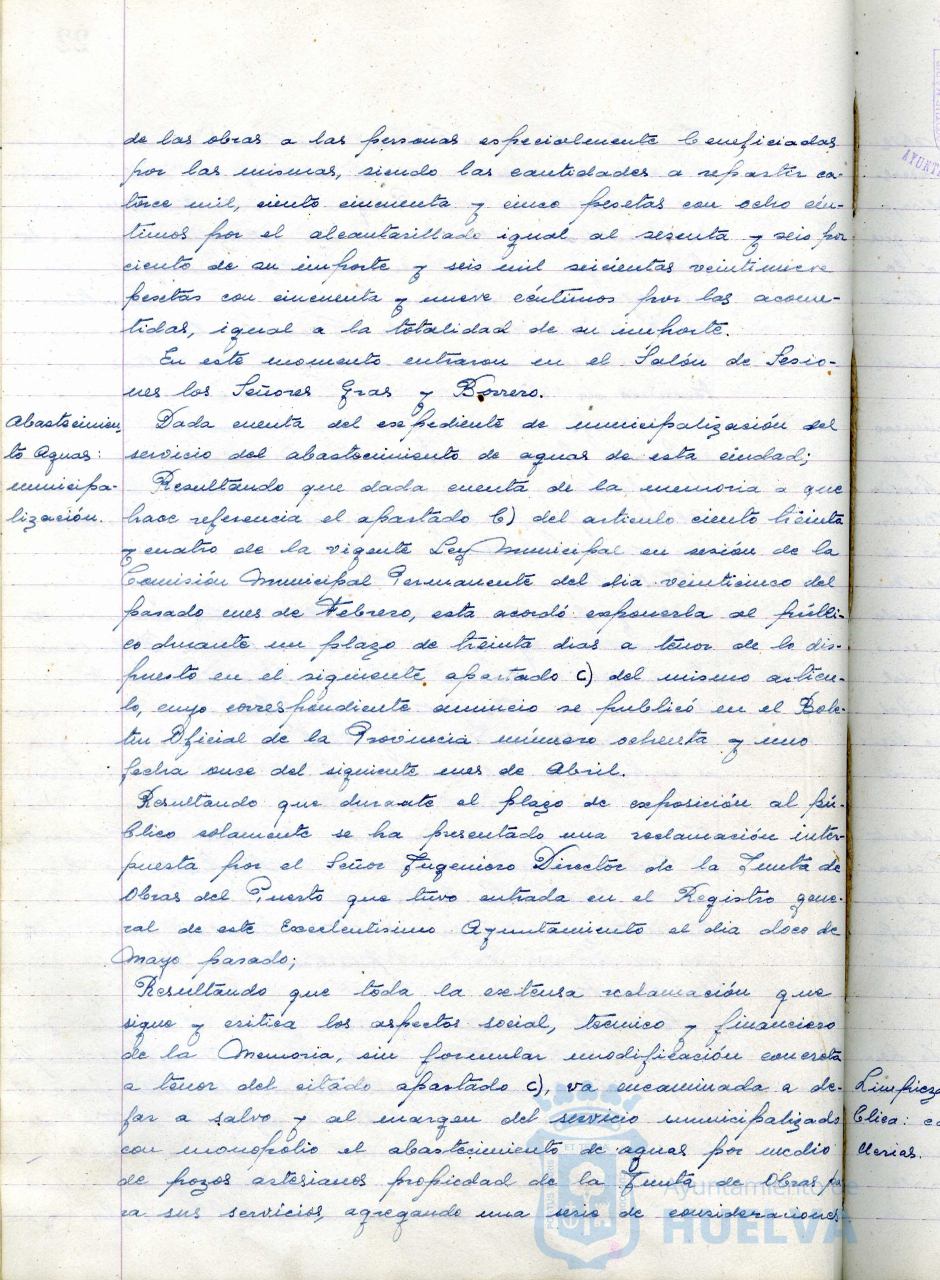 de las obras a las personas especialmente beneficiadas
por las mismas, siendo las cantidades a repartir ca-
torce mil, ciento cincuenta y cinco pesetas con ocho cén-
timos por el alcantarillado igual al sesenta y seis por
ciento de su importe y seis mil seicientas veintinueve
pesetas con cincuenta y nueve céntimos por las acome-
tidas, igual a la totalidad de su importe.
En este momento entraron en el Salón de Sesio-
nes los Señores Gras y Borrero.
Abastecimien-
to Aguas:
municipa-
lización.
Dada cuenta del expediente de municipalización del
servicio del abastecimiento de aguas de esta ciudad;
Resultando que dada cuenta de la memoria a que
hace referencia el apartado b) del articulo ciento treinta
y cuatro de la vigente Ley Municipal en sesión de la
Comisión Municipal Permanente del dia veinticinco del
pasado mes de Febrero, esta acordó exponerla al públi-
co durante un plazo de treinta dias a tenor de lo dis-
puesto en el siguiente apartado c) del mismo articu-
lo, cuyo correspondiente anuncio se publicó en el Bole-
tin Oficial de la Provincia número ochenta y uno
fecha once del siguiente mes de Abril.
Resultando que durante el plazo de exposición al pú-
blico solamente se ha presentado una reclamación inter-
puesta por el Señor Ingeniero Director de la Junta de
Obras del Puerto que tuvo entrada en el Registro gene-
ral de este Excelentisimo Ayuntamiento el dia doce de
Mayo pasado;
Resultando que toda la extensa reclamación que
sigue y critica los aspectos social, tecnico y financiero
de la Memoria, sin formular modificación concreta
a tenor del citado apartado c), va encaminada a de-
jar a salvo y al margen del servicio municipalizado
con monopolio el abastecimiento de aguas por medio
de pozos artesianos propiedad de la Junta de Obras pa-
ra sus servicios, agregando una serie de consideraciones
Limpieza
blica:
Ayuntamiento de
HUELVA